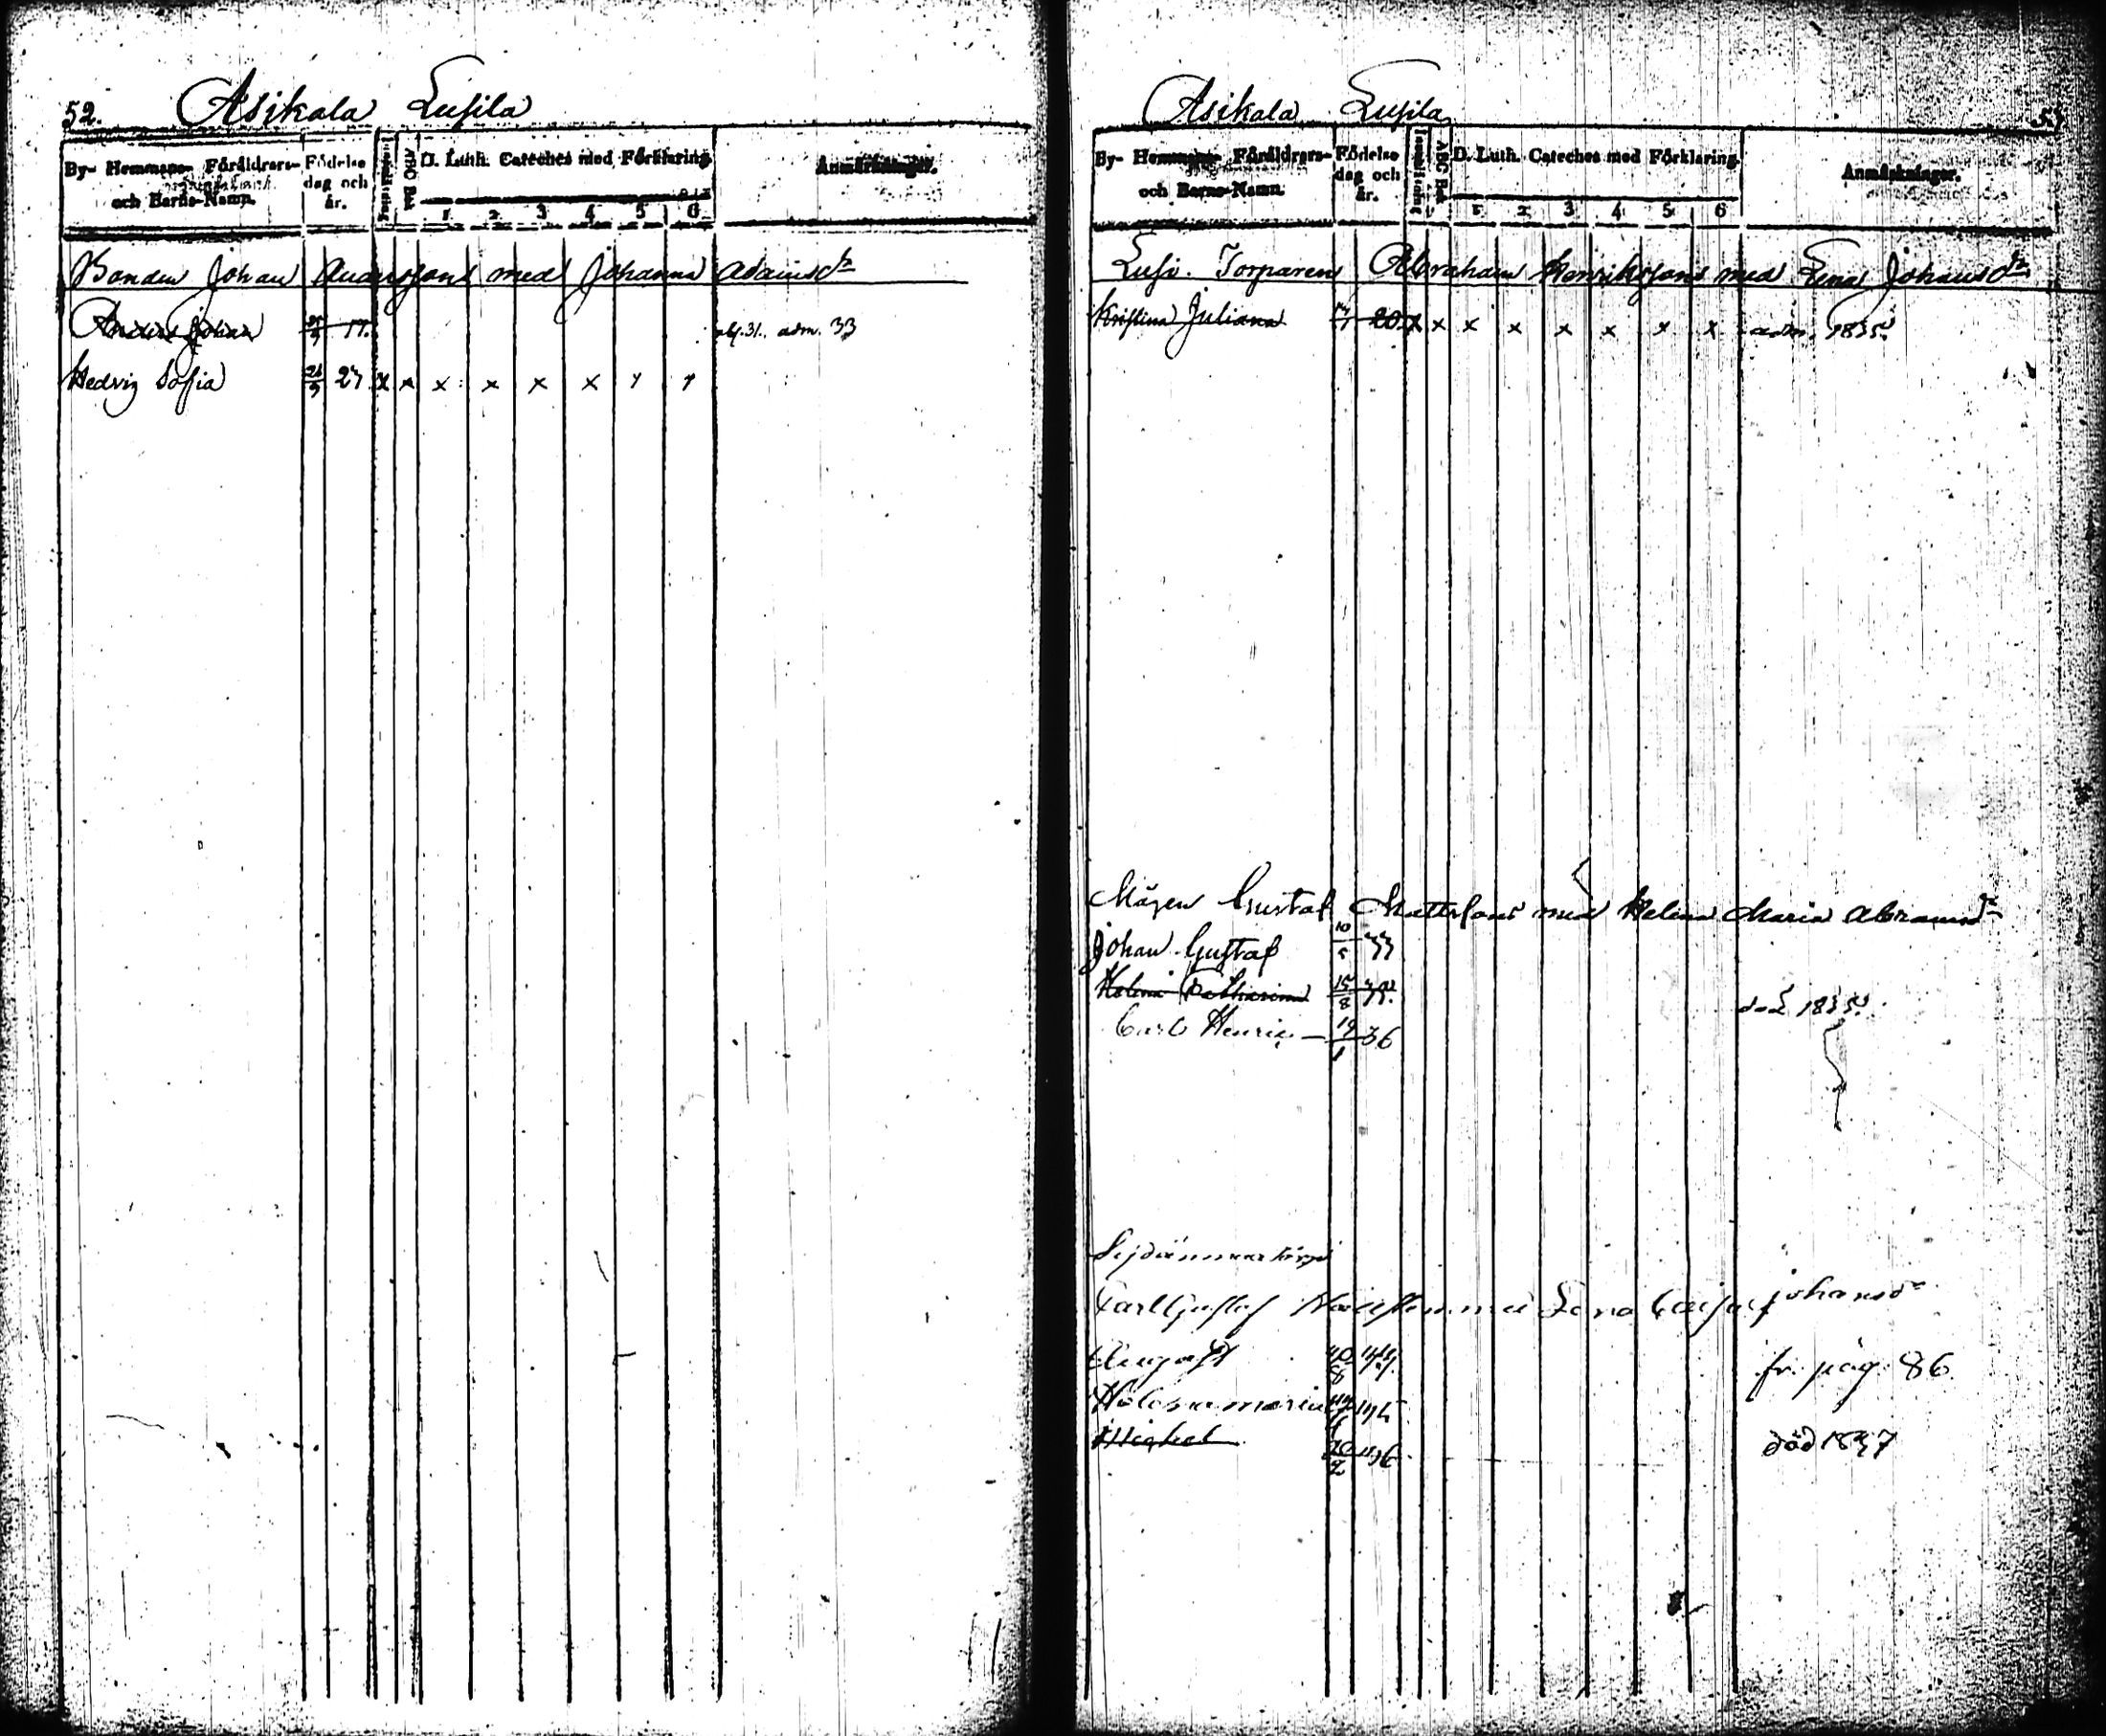 52. Asikala Lusila
By- Hemmans- Föräldrars- och Barns-Namn. Födelse dag och år. ABC Bok D. Luth. Cateches med Förklaring. Anmärkningar.
1 2 3 4 5 6
Bonden Johan Andersson med Johanna Adamsdr
Anders Johan 17. abs. 31. adm. 33
Hedvig Sofia 27 x x x x x x x x
Asikala Lusila 53
By- Hemmans- Föräldrars- och Barns-Namn. Födelse dag och år. ABC Bok D. Luth. Cateches med Förklaring. Anmärkningar.
1 2 3 4 5 6
Lusi. Torparen Abraham Henriksson med Lena Johansdr
Kristina Juliana 20. x x x x x x x x adm. 1835.
Mågen Gustaf Mattsson med Helena Maria Abramsdr
Johan Gustaf 10 33
Helena Catharina 15/8 35. död 1835.
Carl Henric 19/1 36
Carl Gustaf med Lena Cajsa Johansdr
August fr. pag. 86
Helena Maria
Michel 20/2 död 1837